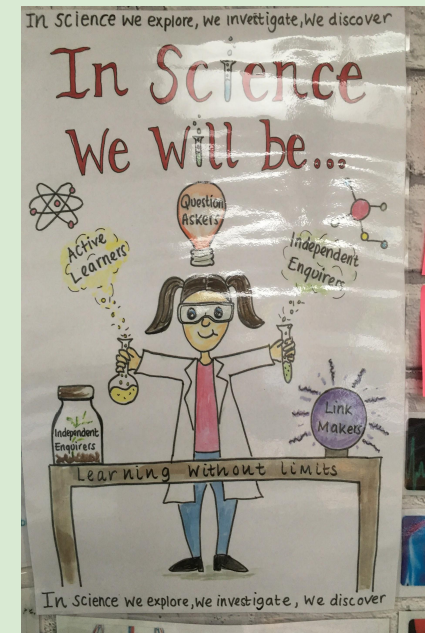 In Science we explore, we investigate, we discover
In Science
We Will be...
Question
Askers
Active
Learners
Independent
Enquirers
Independent
Enquirers
Link
Makers
Learning Without limits
In Science we explore, we investigate, we discover